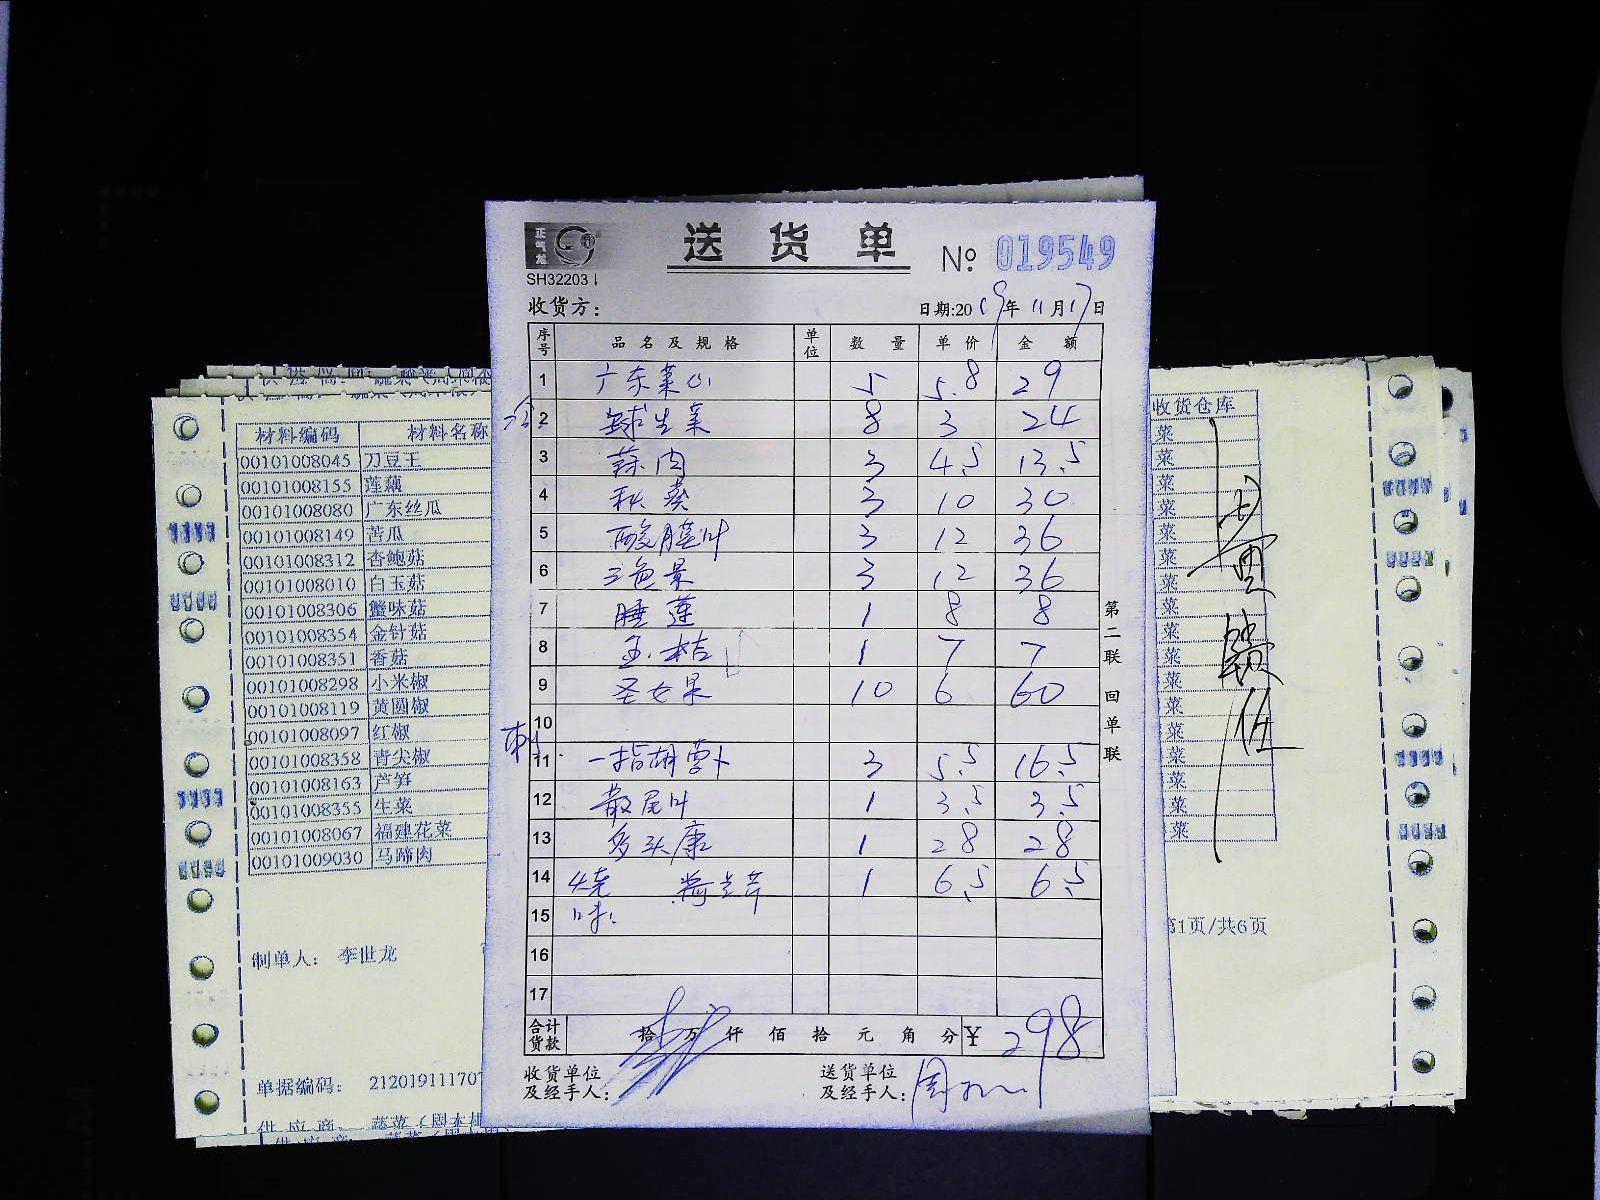 正气龙
SH32203
送货单 № 019549
收货方: 日期:2019年11月17日
序号 品名及规格 单位 数量 单价 金额
1 广东菜心 5 5.8 29
2 球生菜 8 3 24
3 蒜肉 3 4.5 13.5
4 秋葵 3 10 30
5 酸膜叶 3 12 36
6 三色景 3 12 36
7 睡莲 1 8 8
8 1 7 7
9 圣女果 10 6 60
10
刺
11 一指胡萝卜 3 5.5 16.5
12 散尾叶 1 3.5 3.5
13 多头康 1 28 28
14 烧 荷兰芹 1 6.5 6.5
15 味:
16
17
合计货款 拾万仟佰拾元角分 ¥ 298
收货单位及经手人:
送货单位及经手人: 周
第二联 回单联
材料编码 材料名称
00101008045 刀豆王
00101008155 莲藕
00101008080 广东丝瓜
00101008149 苦瓜
00101008312 杏鲍菇
00101008010 白玉菇
00101008306 蟹味菇
00101008354 金针菇
00101008351 香菇
00101008298 小米椒
00101008119 黄圆椒
00101008097 红椒
00101008358 青尖椒
00101008163 芦笋
00101008355 生菜
00101008067 福建花菜
00101009030 马蹄肉
制单人: 李世龙
单据编码: 21201911170
供应商: 蔬菜(周本
收货仓库
菜
菜
菜
菜
菜
菜
菜
菜
菜
菜
菜
菜
菜
菜
菜
菜
菜
第1页/共6页